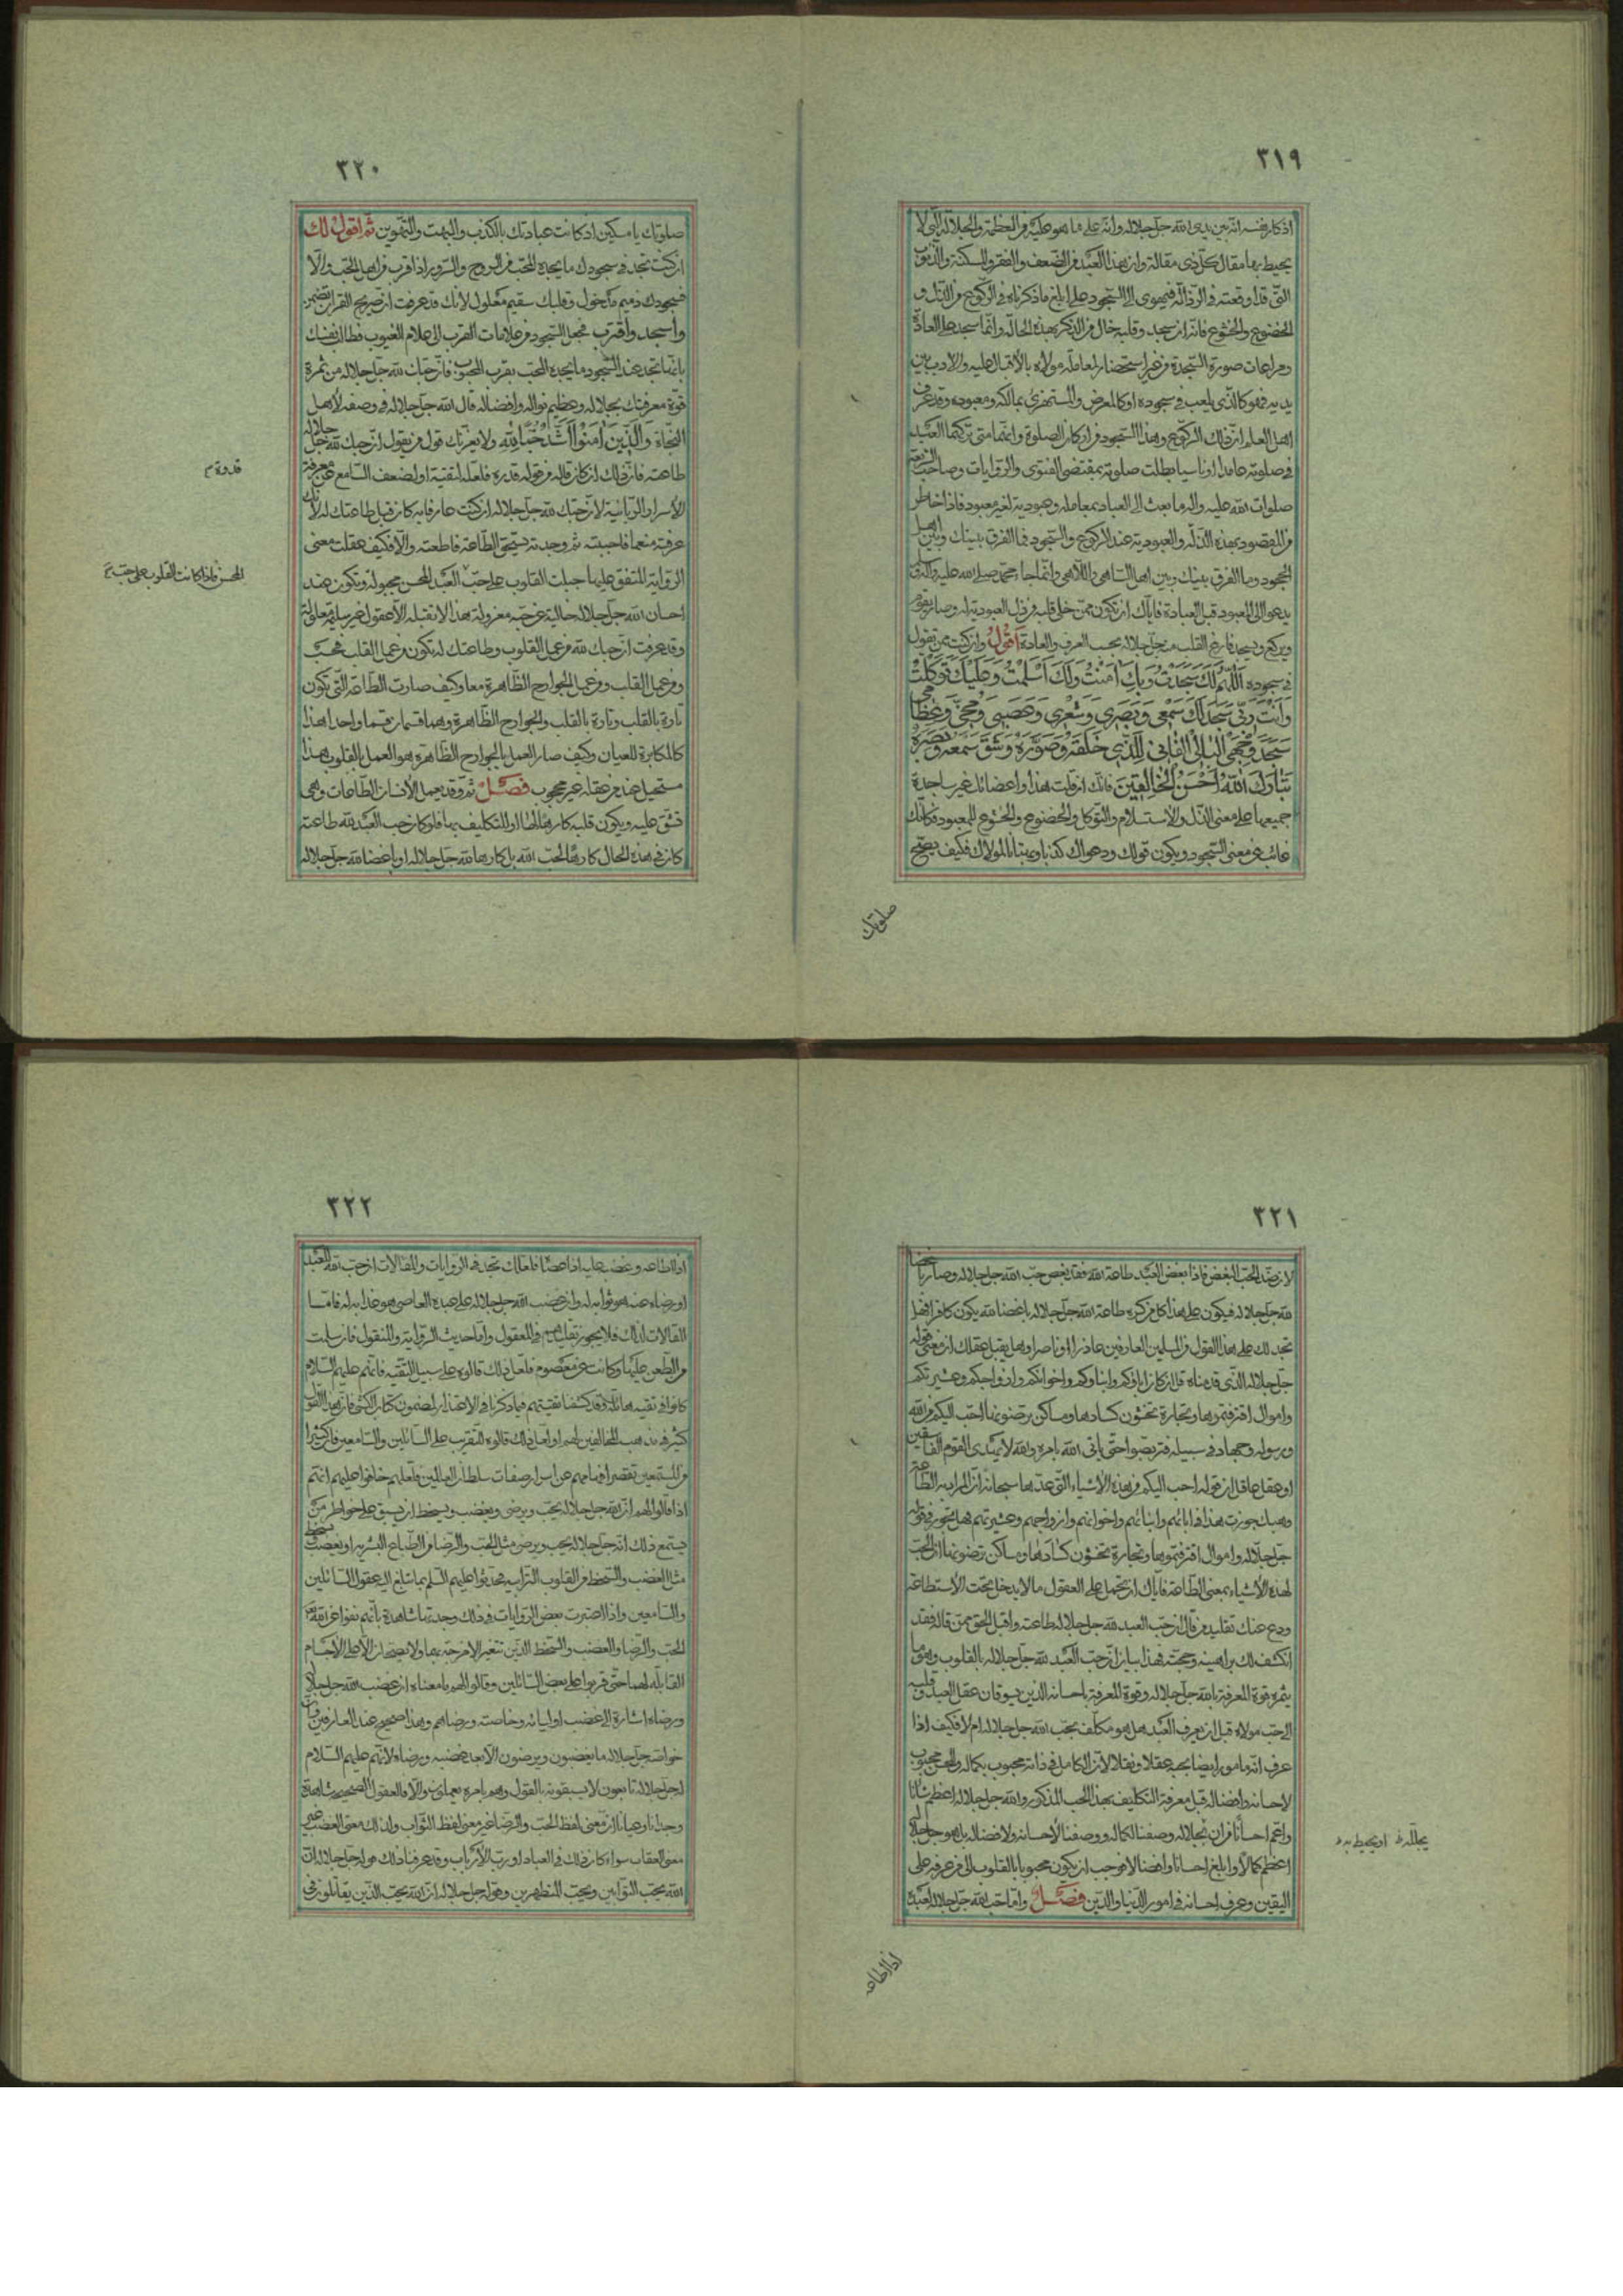 ٣١٩
اذكار نفسه انه بين يدى الله جل جلاله وانه على ما هو عليه من العظمة والجلالة التى لا
يحيط بها مقال كل ذى مقالة وان هذا العبد من الضعف والفقر والمسكنة والذنوب
التى قد اوقعته فى الرذالة فيهوى الى السجود على ابلغ ما ذكرناه فى الركوع من الذل و
الخضوع والخشوع فانه ان سجد وقلبه خال من الذكر بهذه الحالة وانما سجد على العادة
ومراعات صورة السجدة من غير استحضار لمعاملة مولاه بالاقبال عليه والادب بين
يديه فهو كالذى يلعب فى سجوده او كالمعرض والمستهزئ بمالكه ومعبوده وقد عرف
اهل العلم ان ذلك الركوع وهذا السجود من اركان الصلوة وانهما متى تركهما العبد
فى صلوته عامدا او ناسيا بطلت صلوته بمقتضى الفتوى والروايات وصاحب الشريعة
صلوات الله عليه واله ما بعث الى العباد بمعاملة وعبودية لغير معبود فاذا خلا خاطر
من المقصود بهذه الذلة والعبودية عند الركوع والسجود فما الفرق بينك وبين اهل
الجحود وما الفرق بينك وبين اهل الساهى واللاهى وانما جاء محمد صلى الله عليه واله
يدعو الى المعبود قبل العبادة فاياك ان تكون ممن خلى قلبه من ذل العبودية له وصار يقوم
ويركع ويسجد فارغ القلب من جل جلاله بحسب العرف والعادة اقول وان كنت ممن تقول
فى سجوده اَللّٰهُمَّ لَكَ سَجَدْتُ وَبِكَ اٰمَنْتُ وَلَكَ اَسْلَمْتُ وَعَلَيْكَ تَوَكَّلْتُ
وَاَنْتَ رَبِّى سَجَدَ لَكَ سَمْعِى وَبَصَرِى وَشَعْرِى وَعَصَبِى وَمُخِّى وَعِظَامِى
سَجَدَ وَجْهِىَ الْبَالِى الْفَانِى لِلَّذِى خَلَقَهُ وَصَوَّرَهُ وَشَقَّ سَمْعَهُ وَبَصَرَهُ
تَبَارَكَ اللهُ اَحْسَنُ الْخَالِقِينَ فانك ان قلت هذا واعضائك غير ساجدة
جميعها على معنى الذل والاستسلام والتوكل والخضوع والخشوع للمعبود فكانك
غائب عن معنى السجود ويكون قولك ودعواك كذبا وبهتانا لمولاك فكيف يصح
صلوتك
٣٢٠
صلوتك يا مسكين اذ كانت عبادتك بالكذب والبهت والتهوين ثم اقول لك
ان كنت تجد فى سجودك ما يجده المحب من الروح والسرور اذا قرب من اهل المحب والا
فسجودك ذميم مدخول وقلبك سقيم معلول لانك قد عرفت ان صريح القران تضمن
واسجد واقترب فجعل السجود من علامات القرب الى علام الغيوب فطالب نفسك
بانها تجد عند السجود ما يجده المحب بقرب المحبوب فان حبك لله جل جلاله من ثمرة
قوة معرفتك بجلاله وعظيم نواله وافضاله قال الله جل جلاله فى وصفه لاهل
النجاة وَالَّذِينَ اٰمَنُوا اَشَدُّ حُبًّا لِلهِ ولا يغرنك قول من يقول ان حبك لله جل جلاله
طاعته فان ذلك ان كان قاله من قوله قدره فلعله لتقية او لضعف السامع عن معرفة
قدوة م
الاسرار الربانية لان حبك لله جل جلاله ان كنت عارفا به كان قبل طاعتك له لانك
عرفته منعما فاحببته ثم وجدته يستحق الطاعة فاطعته والا فكيف عقلت معنى
الرواية المتفق عليها جبلت القلوب على حب العبد المحسن مجبولة وتكون عند
المحسن فاذا كانت القلوب على حب م
احسان الله جل جلاله خالية عن حبه معزولة هذا لا تقبله الا عقول غير سليمة معلولة
وقد عرفت ان حبك لله من عمل القلوب وطاعتك له تكون من عمل القلب فحسب
ومن عمل القلب ومن عمل الجوارح الظاهرة معا وكيف صارت الطاعة التى تكون
تارة بالقلب وتارة بالقلب والجوارح الظاهرة وهما قسمان قسما واحدا هذا
كالمكابرة للعيان وكيف صار العمل بالجوارح الظاهرة هو العمل بالقلوب هذا
مستحيل عند من عقله غير محجوب فصل ثم وقد يعمل الانسان الطاعات وهى
تشق عليه ويكون قلبه كارها لها او للتكليف بها فلو كان حب العبد لله طاعته
كان فى هذه الحال كارها لحب الله بل كارها لله جل جلاله او باغضا لله جل جلاله
٣٢١
لان ضد الحب البغض فاذا بغض العبد طاعة الله فقد بغض حب الله جل جلاله وصار باغضا
لله جل جلاله فيكون على هذا كل من كره طاعة الله جل جلاله باغضا لله يكون كافرا فهل
تجد لك على هذا القول من المسلمين العارفين عاذرا او ناصرا وهل يقبل عقلك ان معنى قوله
جل جلاله الذى قدمناه قل ان كان اباؤكم وابناؤكم واخوانكم وازواجكم وعشيرتكم
واموال اقترفتموها وتجارة تخشون كسادها ومساكن ترضونها احب اليكم من الله
ورسوله وجهاد فى سبيله فتربصوا حتى ياتى الله بامره والله لا يهدى القوم الفاسقين
او عقل عاقل ان قوله احب اليكم من هذه الاشياء التى عدها سبحانه ان المراد به الطاعة
وهبك جوزت هذا فى ابائهم وابنائهم واخوانهم وازواجهم وعشيرتهم فهل تجوز فى قوله
جل جلاله واموال اقترفتموها وتجارة تخشون كسادها ومساكن ترضونها ان الحب
لهذه الاشياء بمعنى الطاعة فاياك ان تحمل على العقول ما لا يدخل تحت الاستطاعة
ودع عنك تقليد من قال ان حب العبد لله جل جلاله طاعته واقبل الحق ممن قاله فقد
انكشف لك براهينه وحجته فهذا بيان ان حب العبد لله جل جلاله بالقلوب وهو ما
يثمره قوة المعرفة بالله جل جلاله وقوة المعرفة باحسانه الذين يسوقان عقل العبد وقلبه
الى حب مولاه قبل ان يعرف العبد هل هو مكلف بحب الله جل جلاله ام لا فكيف اذا
عرف انه مامور ايضا بحبه عقلا ونقلا لان الكامل فى ذاته محبوب بكماله والمحسن محبوب
لاحسانه وافضاله قبل معرفة التكليف بهذا الحب المذكور والله جل جلاله اعظم شانا
واعم احسانا من ان بجلاله وصفنا لكماله ووصفنا لاحسانه ولافضاله بل هو جل جلاله
يجلله ظ او يحيط به ظ
اعظم كمالا وابلغ احسانا وافضالا فوجب ان يكون محبوبا بالقلوب الى من عرفه على
اليقين وعرف احسانه فى امور الدنيا والدين فصل واما حب الله جل جلاله لعبده
اذا اطاعه
٣٢٢
اذا اطاعه وغضب عليه اذا عصاه فلعلك تجد فى الروايات والمقالات ان حب الله للعبد
او رضاه عنه هو ثوابه له وان غضب الله جل جلاله على عبده العاصى هو عذابه له فاما
القالات لذلك فلا يجوز تقليدهم فى المعقول واما حديث الرواية والمنقول فان سلمت
من الطعن عليها وكانت عن معصوم فلعل ذلك قالوه على سبيل التقيه فانهم عليهم السلام
كانوا فى تقيه هائلة وقد كشفنا تقيتهم فيما ذكرناه فى الاعتذار لمضمون كتاب الكشى فان هذا القول
كثير فى مذهب المخالفين لهم او لعل ذلك قالوه للتقرب على السائلين والسامعين فان كثيرا
من المستمعين تقصر افهامهم عن اسرار صفات سلطان العالمين فلعلهم خافوا عليهم انهم
اذا قالوا لهم ان الله جل جلاله يحب ويرضى ويغضب ويسخط ان يسبق على خواطر من
يستمع ذلك انه جل جلاله يحب ويرضى مثل الحب والرضا من الطباع البشرية او يغضب ويسخط
مثل الغضب والسخط من القلوب الترابيه فحدثوا عليهم السلام بما تبلغ اليه عقول السائلين
والسامعين واذا اعتبرت بعض الروايات فى ذلك وجدتها شاهدة بانهم نفوا عن الله
الحب والرضا والغضب والسخط الذين تتغير الامزجة بها ولا يصح ان الا على الاجسام
القابلة لهما حتى قربوا على بعض السائلين وقالوا لهم ما معناه ان غضب الله جل جلاله
ورضاه اشارة الى غضب اوليائه وخاصته ورضاهم وهذا صحيح عند العارفين فان
خواصه جل جلاله ما يغضبون ويرضون الا بعد غضبه ورضاه لانهم عليهم السلام
له جل جلاله تابعون لا يسبقونه بالقول وهم بامره يعملون والا فالعقول الصحيحة شاهدة
وجدانا وعيانا ان معنى لفظ الحب والرضا غير معنى لفظ الثواب ولذلك معنى الغضب غير
معنى العقاب سواء كان ذلك فى العباد او رب الارباب وقد عرفنا ذلك قوله جل جلاله ان
الله يحب التوابين ويحب المتطهرين وقوله جل جلاله ان الله يحب الذين يقاتلون فى